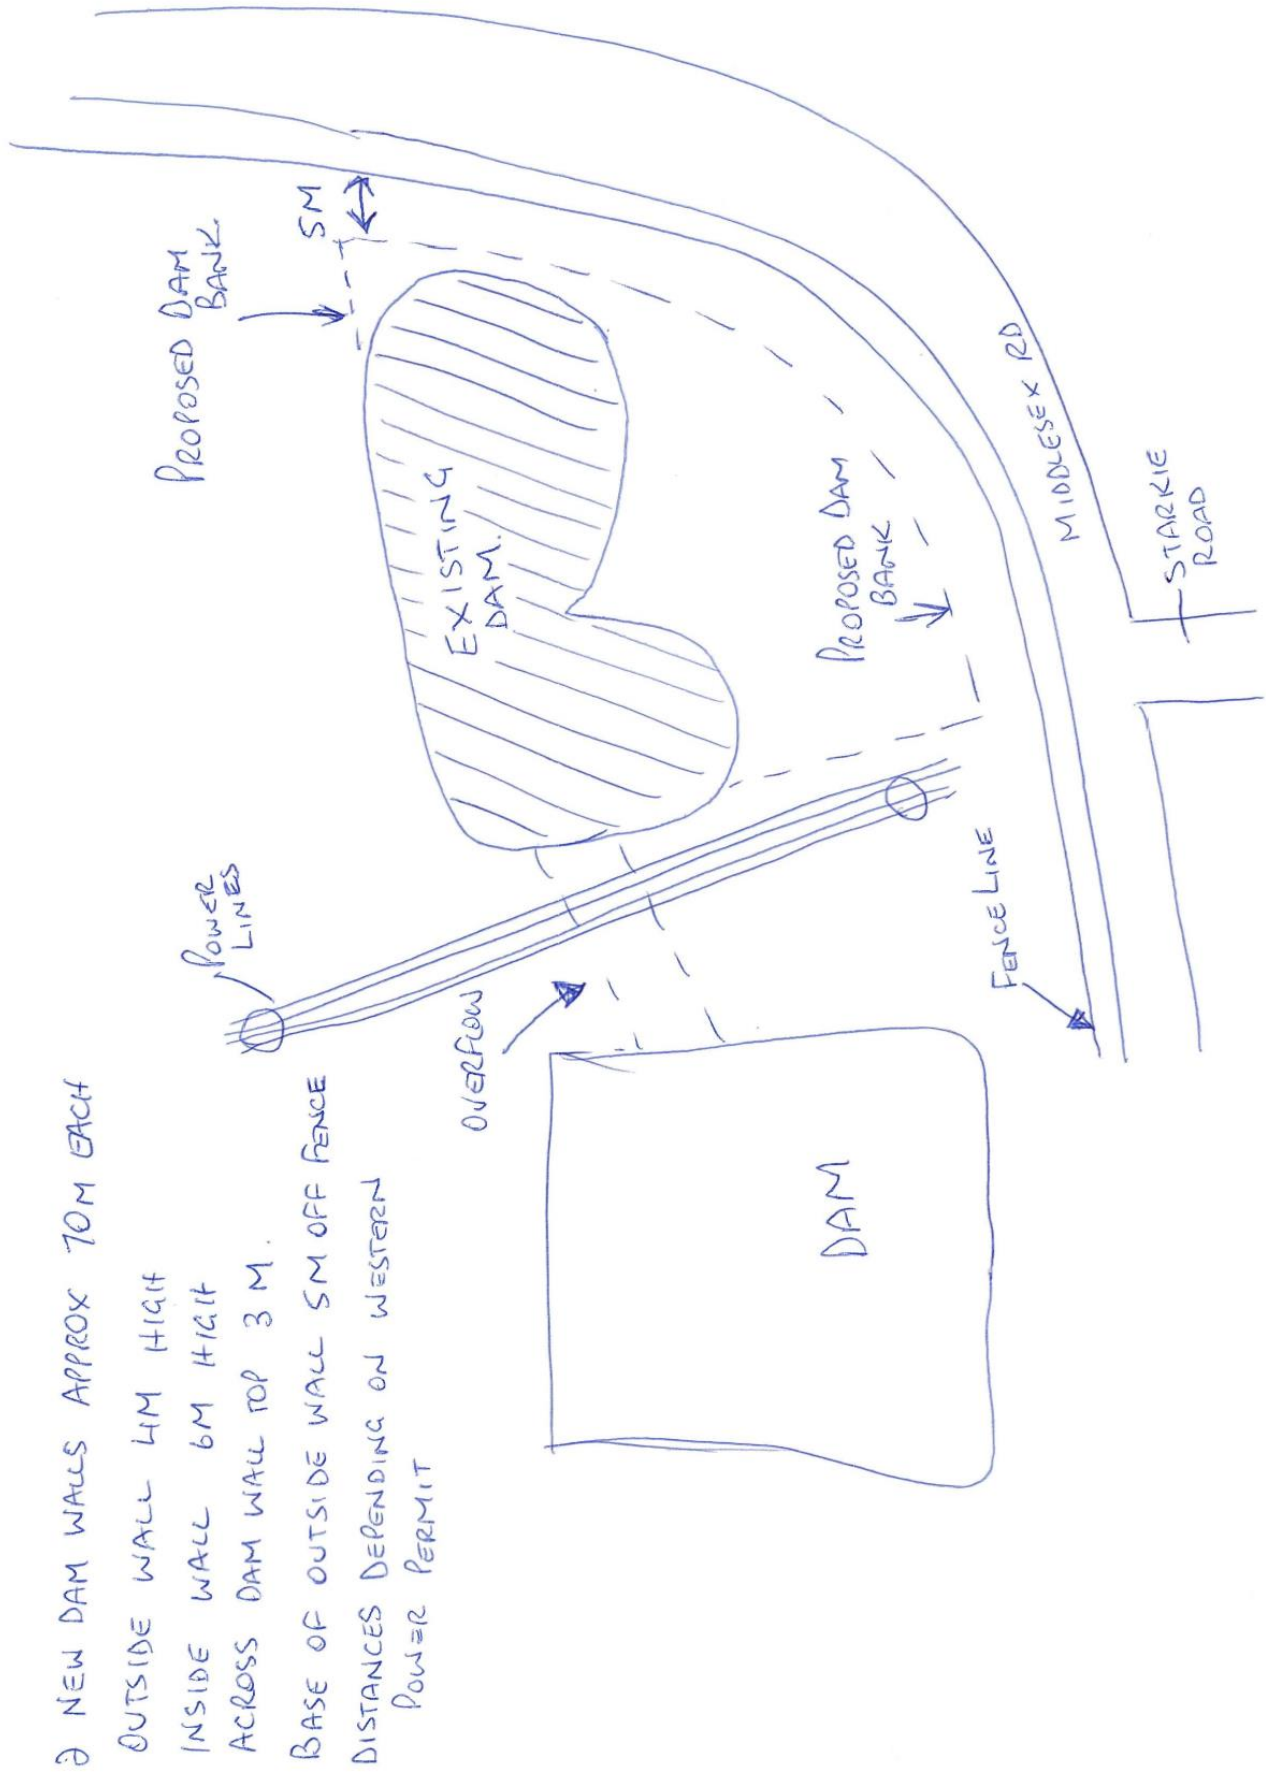 2 NEW DAM WALLS APPROX 70M EACH
OUTSIDE WALL 4M HIGH
INSIDE WALL 6M HIGH
ACROSS DAM WALL TOP 3 M.
BASE OF OUTSIDE WALL 5M OFF FENCE
DISTANCES DEPENDING ON WESTERN
POWER PERMIT
POWER
LINES
PROPOSED DAM
BANK
5M
EXISTING
DAM.
OVERFLOW
PROPOSED DAM
BANK
DAM
FENCE LINE
MIDDLESEX RD
STARKIE
ROAD